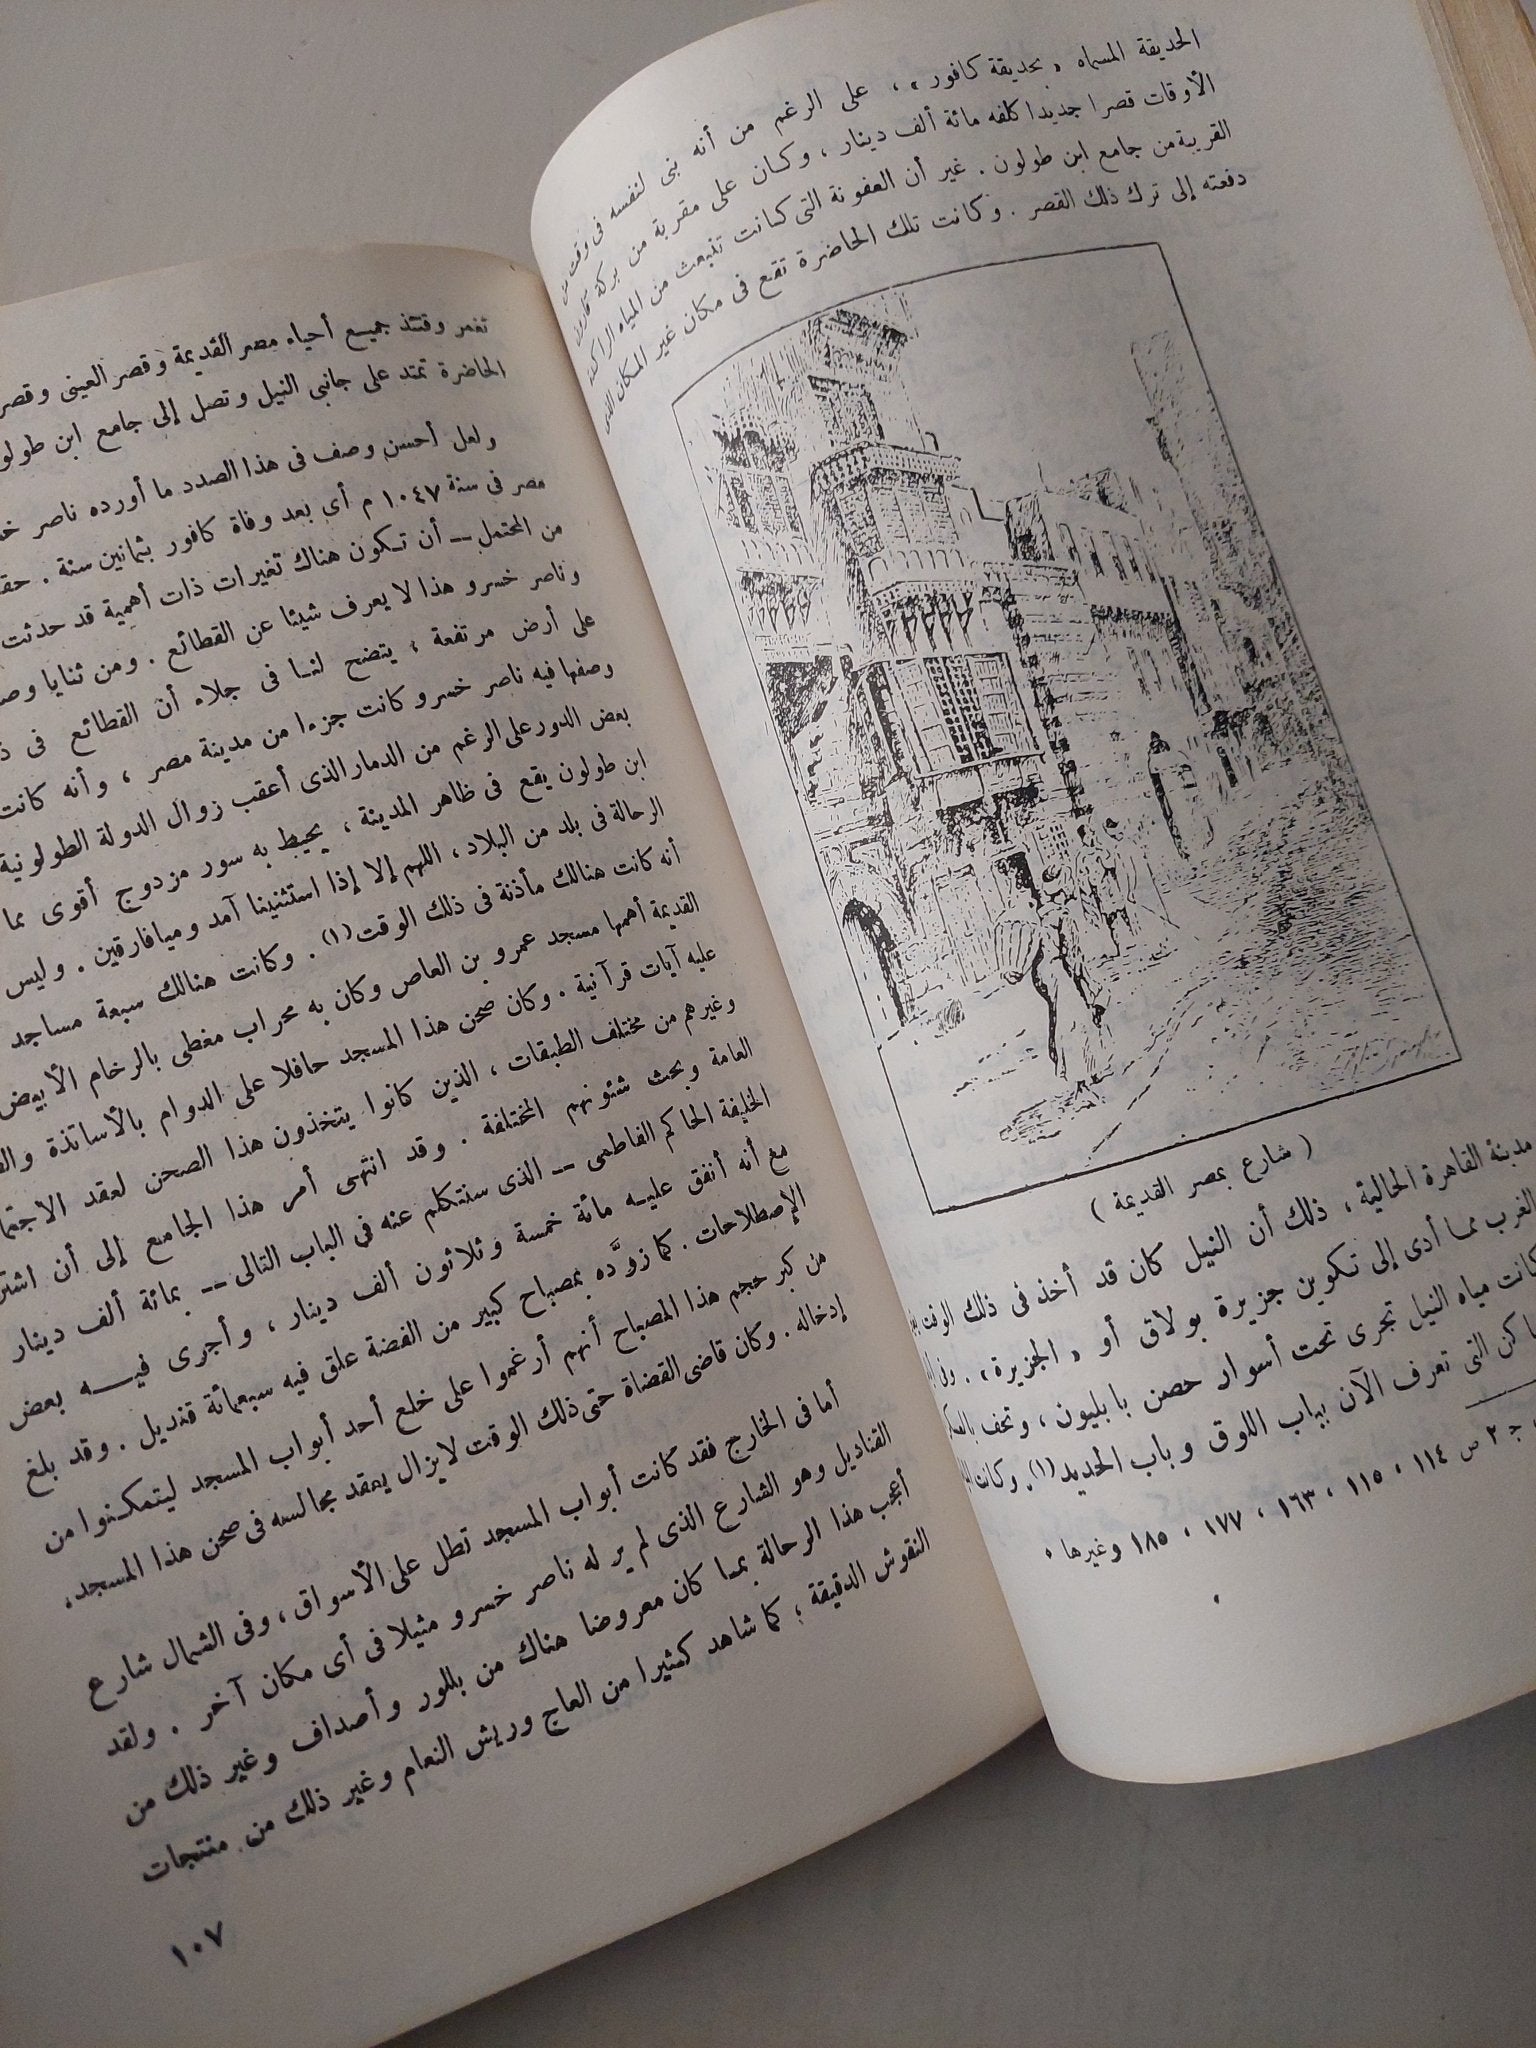 الحديقة المسماه « بحديقة كافور » ، على الرغم من أنه بنى لنفسه فى وقت من
الأوقات قصرا جديدا كلفه مائة ألف دينار ، وكان على مقربة من بركة قارون
القريبة من جامع ابن طولون . غير أن العفونة التى كانت تنبعث من المياه الراكدة
دفعته إلى ترك ذلك القصر . وكانت تلك الحاضرة تقع فى مكان غير المكان الذى
( شارع بمصر القديمة )
مدينة القاهرة الحالية ، ذلك أن النيل كان قد أخذ فى ذلك الوقت
الغرب مما أدى إلى تكوين جزيرة بولاق أو « الجزيرة » .
كانت مياه النيل تجرى تحت أسوار حصن بابليون ، وتحف
التى تعرف الآن بباب اللوق وباب الحديد (١) . وكانت
ج ٢ ص ١١٤ ، ١١٥ ، ١٦٣ ، ١٧٧ ، ١٨٥ وغيرها .
تغمر وقتئذ جميع أحياء مصر القديمة وقصر العينى وقصر
الحاضرة تمتد على جانبى النيل وتصل إلى جامع ابن
ولعل أحسن وصف فى هذا الصدد ما أورده ناصر
مصر فى سنة ١٠٤٧ م أى بعد وفاة كافور بثمانين سنة .
من المحتمل — أن تكون هناك تغيرات ذات أهمية قد حدثت
وناصر خسرو هذا لا يعرف شيئا عن القطائع . ومن ثنايا
على أرض مرتفعة ؛ يتضح لنا فى جلاء أن القطائع فى
وصفها فيه ناصر خسرو كانت جزءا من مدينة مصر ، وأنه كانت
بعض الدور على الرغم من الدمار الذى أعقب زوال الدولة الطولونية
ابن طولون يقع فى ظاهر المدينة ، يحيط به سور مزدوج أقوى مما
الرحالة فى بلد من البلاد ، اللهم إلا إذا استثنينا آمد وميافارقين . وليس
أنه كانت هنالك مأذنة فى ذلك الوقت (١) . وكانت هنالك سبعة مساجد
القديمة أهمها مسجد عمرو بن العاص وكان به محراب مغطى بالرخام الأبيض
عليه آيات قرآنية . وكان صحن هذا المسجد حافلا على الدوام بالأساتذة
وغيرهم من مختلف الطبقات ، الذين كانوا يتخذون هذا الصحن لعقد
العامة وبحث شئونهم المختلفة . وقد انتهى أمر هذا الجامع إلى أن
الخليفة الحاكم الفاطمى -- الذى سنتكلم عنه فى الباب التالى -- بمائة ألف دينار
مع أنه أنفق عليه مائة خمسة وثلاثون ألف دينار ، وأجرى فيه بعض
الإصطلاحات . كما زوَّده بمصباح كبير من الفضة علق فيه سبعمائة قنديل . وقد بلغ
من كبر حجم هذا المصباح أنهم أرغموا على خلع أحد أبواب المسجد ليتمكنوا من
إدخاله . وكان قاضى القضاة حتى ذلك الوقت لا يزال يعقد مجالسه فى صحن هذا المسجد .
أما فى الخارج فقد كانت أبواب المسجد تطل على الأسواق ، وفى الشمال شارع
القناديل وهو الشارع الذى لم ير له ناصر خسرو مثيلا فى أى مكان آخر . ولقد
أعجب هذا الرحالة بما كان معروضا هناك من بللور وأصداف وغير ذلك من
النقوش الدقيقة ؛ كما شاهد كثيرا من العاج وريش النعام وغير ذلك من منتجات
١٠٧